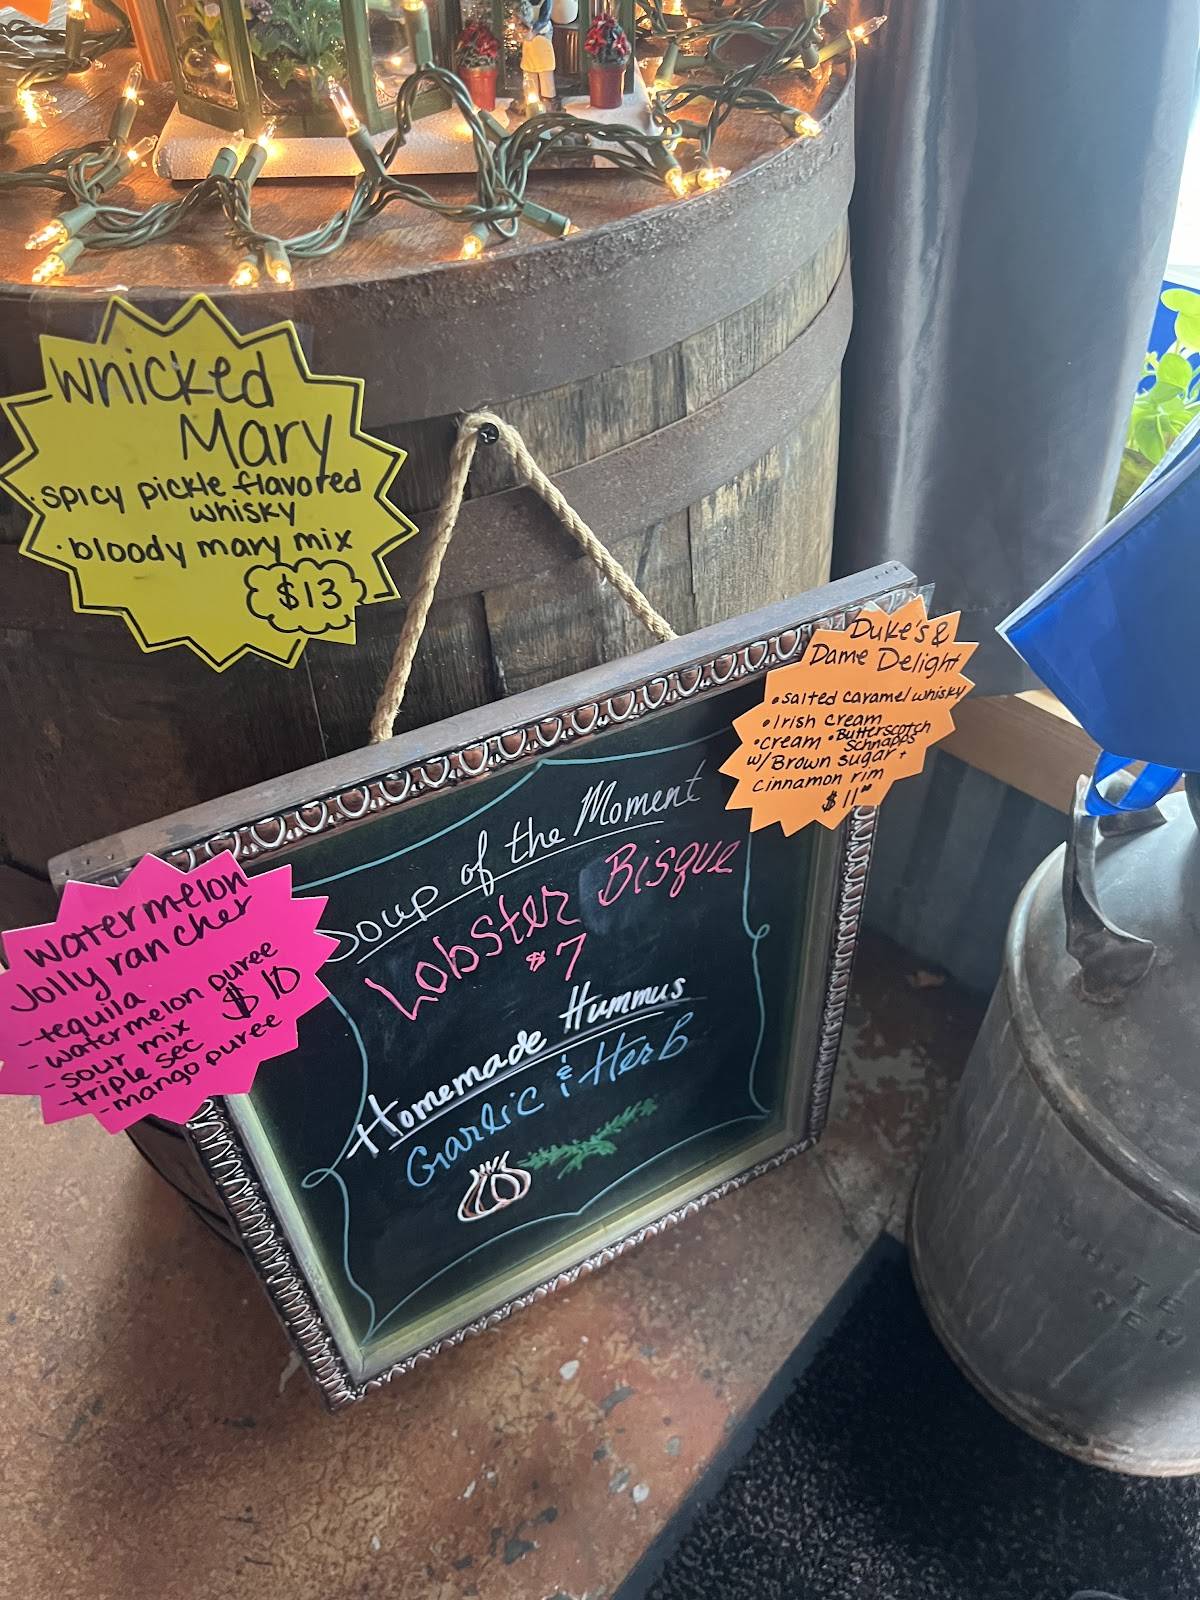 Whicked
Mary
•spicy pickle flavored
whisky
•bloody mary mix
$13
Duke's &
Dame Delight
•salted caramel whisky
•Irish cream
•cream •Butterscotch
Schnapps
w/Brown sugar +
cinnamon rim
$11⁰⁰
Soup of the Moment
Lobster Bisque
$7
Homemade Hummus
Garlic & Herb
Watermelon
Jolly rancher
-tequila
-watermelon puree
-sour mix $10
-triple sec
-mango puree